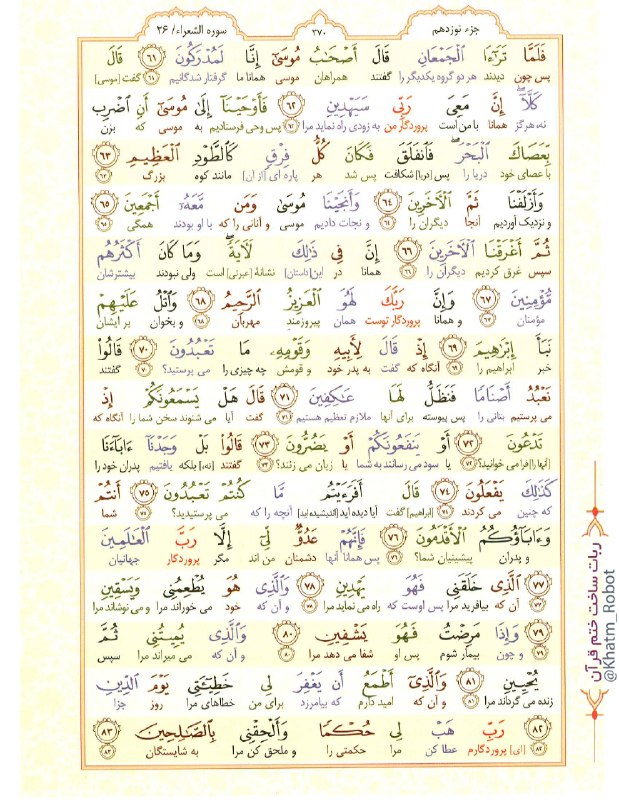 جزء نوزدهم
۳۷۰
سوره الشعراء/ ۲۶
فَلَمَّا تَرَٰٓءَا ٱلْجَمْعَانِ قَالَ أَصْحَٰبُ مُوسَىٰٓ إِنَّا لَمُدْرَكُونَ ۶۱ قَالَ
پس چون دیدند هر دو گروه یکدیگر را گفتند همراهان موسی همانا ما گرفتار شدگانیم ۶۱ گفت [موسی]
كَلَّآ إِنَّ مَعِىَ رَبِّى سَيَهْدِينِ ۶۲ فَأَوْحَيْنَآ إِلَىٰ مُوسَىٰٓ أَنِ ٱضْرِب
نه، هرگز همانا با من است پروردگار من به زودی راه نماید مرا ۶۲ پس وحی فرستادیم به موسی که بزن
بِّعَصَاكَ ٱلْبَحْرَ فَٱنفَلَقَ فَكَانَ كُلُّ فِرْقٍ كَٱلطَّوْدِ ٱلْعَظِيمِ ۶۳
با عصای خود دریا را پس [دریا] شکافت پس شد هر پاره ای [از آن] مانند کوه بزرگ ۶۳
وَأَزْلَفْنَا ثَمَّ ٱلْءَاخَرِينَ ۶۴ وَأَنجَيْنَا مُوسَىٰ وَمَن مَّعَهُۥٓ أَجْمَعِينَ ۶۵
و نزدیک آوردیم آنجا دیگران را ۶۴ و نجات دادیم موسی و آنانی را که با او بودند همگی ۶۵
ثُمَّ أَغْرَقْنَا ٱلْءَاخَرِينَ ۶۶ إِنَّ فِى ذَٰلِكَ لَءَايَةً وَمَا كَانَ أَكْثَرُهُم
سپس غرق کردیم دیگران را ۶۶ همانا در این [داستان] نشانهٔ [عبرتی] است ولی نبودند بیشترشان
مُّؤْمِنِينَ ۶۷ وَإِنَّ رَبَّكَ لَهُوَ ٱلْعَزِيزُ ٱلرَّحِيمُ ۶۸ وَٱتْلُ عَلَيْهِمْ
مؤمنان ۶۷ و همانا پروردگار توست همان پیروزمند مهربان ۶۸ و بخوان بر ایشان
نَبَأَ إِبْرَٰهِيمَ ۶۹ إِذْ قَالَ لِأَبِيهِ وَقَوْمِهِۦ مَا تَعْبُدُونَ ۷۰ قَالُوا۟
خبر ابراهیم را ۶۹ آنگاه که گفت به پدر خود و قومش چه چیزی را می پرستید؟ ۷۰ گفتند
نَعْبُدُ أَصْنَامًا فَنَظَلُّ لَهَا عَٰكِفِينَ ۷۱ قَالَ هَلْ يَسْمَعُونَكُمْ إِذْ
می پرستیم بتانی را پس پیوسته برای آنها ملازم تعظیم هستیم ۷۱ گفت آیا می شنوند سخن شما را آنگاه که
تَدْعُونَ ۷۲ أَوْ يَنفَعُونَكُمْ أَوْ يَضُرُّونَ ۷۳ قَالُوا۟ بَلْ وَجَدْنَآ ءَابَآءَنَا
[آنها را] فرا می خوانید؟ ۷۲ یا سود می رسانند به شما یا زیان می زنند؟ ۷۳ گفتند [نه،] بلکه یافتیم پدران خود را
كَذَٰلِكَ يَفْعَلُونَ ۷۴ قَالَ أَفَرَءَيْتُم مَّا كُنتُمْ تَعْبُدُونَ ۷۵ أَنتُمْ
که چنین می کردند ۷۴ [ابراهیم] گفت آیا دیده اید [اندیشیده اید] آنچه را که می پرستیدید؟ ۷۵ شما
وَءَابَآؤُكُمُ ٱلْأَقْدَمُونَ ۷۶ فَإِنَّهُمْ عَدُوٌّ لِّىٓ إِلَّا رَبَّ ٱلْعَٰلَمِينَ
و پدران پیشینیان شما؟ ۷۶ پس همانا آنها دشمنان من اند مگر پروردگار جهانیان
۷۷ ٱلَّذِى خَلَقَنِى فَهُوَ يَهْدِينِ ۷۸ وَٱلَّذِى هُوَ يُطْعِمُنِى وَيَسْقِينِ
۷۷ آن که بیافرید مرا پس اوست که راه می نماید مرا ۷۸ و آن که خود می خوراند مرا و می نوشاند مرا
۷۹ وَإِذَا مَرِضْتُ فَهُوَ يَشْفِينِ ۸۰ وَٱلَّذِى يُمِيتُنِى ثُمَّ
۷۹ و چون بیمار شوم پس او شفا می دهد مرا ۸۰ و آن که می میراند مرا سپس
يُحْيِينِ ۸۱ وَٱلَّذِىٓ أَطْمَعُ أَن يَغْفِرَ لِى خَطِيٓـَٔتِى يَوْمَ ٱلدِّينِ
زنده می گرداند مرا ۸۱ و آن که امید دارم که بیامرزد برای من خطاهای مرا روز جزا
۸۲ رَبِّ هَبْ لِى حُكْمًا وَأَلْحِقْنِى بِٱلصَّٰلِحِينَ ۸۳
۸۲ [ای] پروردگارم عطا کن مرا حکمتی را و ملحق کن مرا به شایستگان ۸۳
ربات ساخت ختم قرآن
@Khatm_Robot